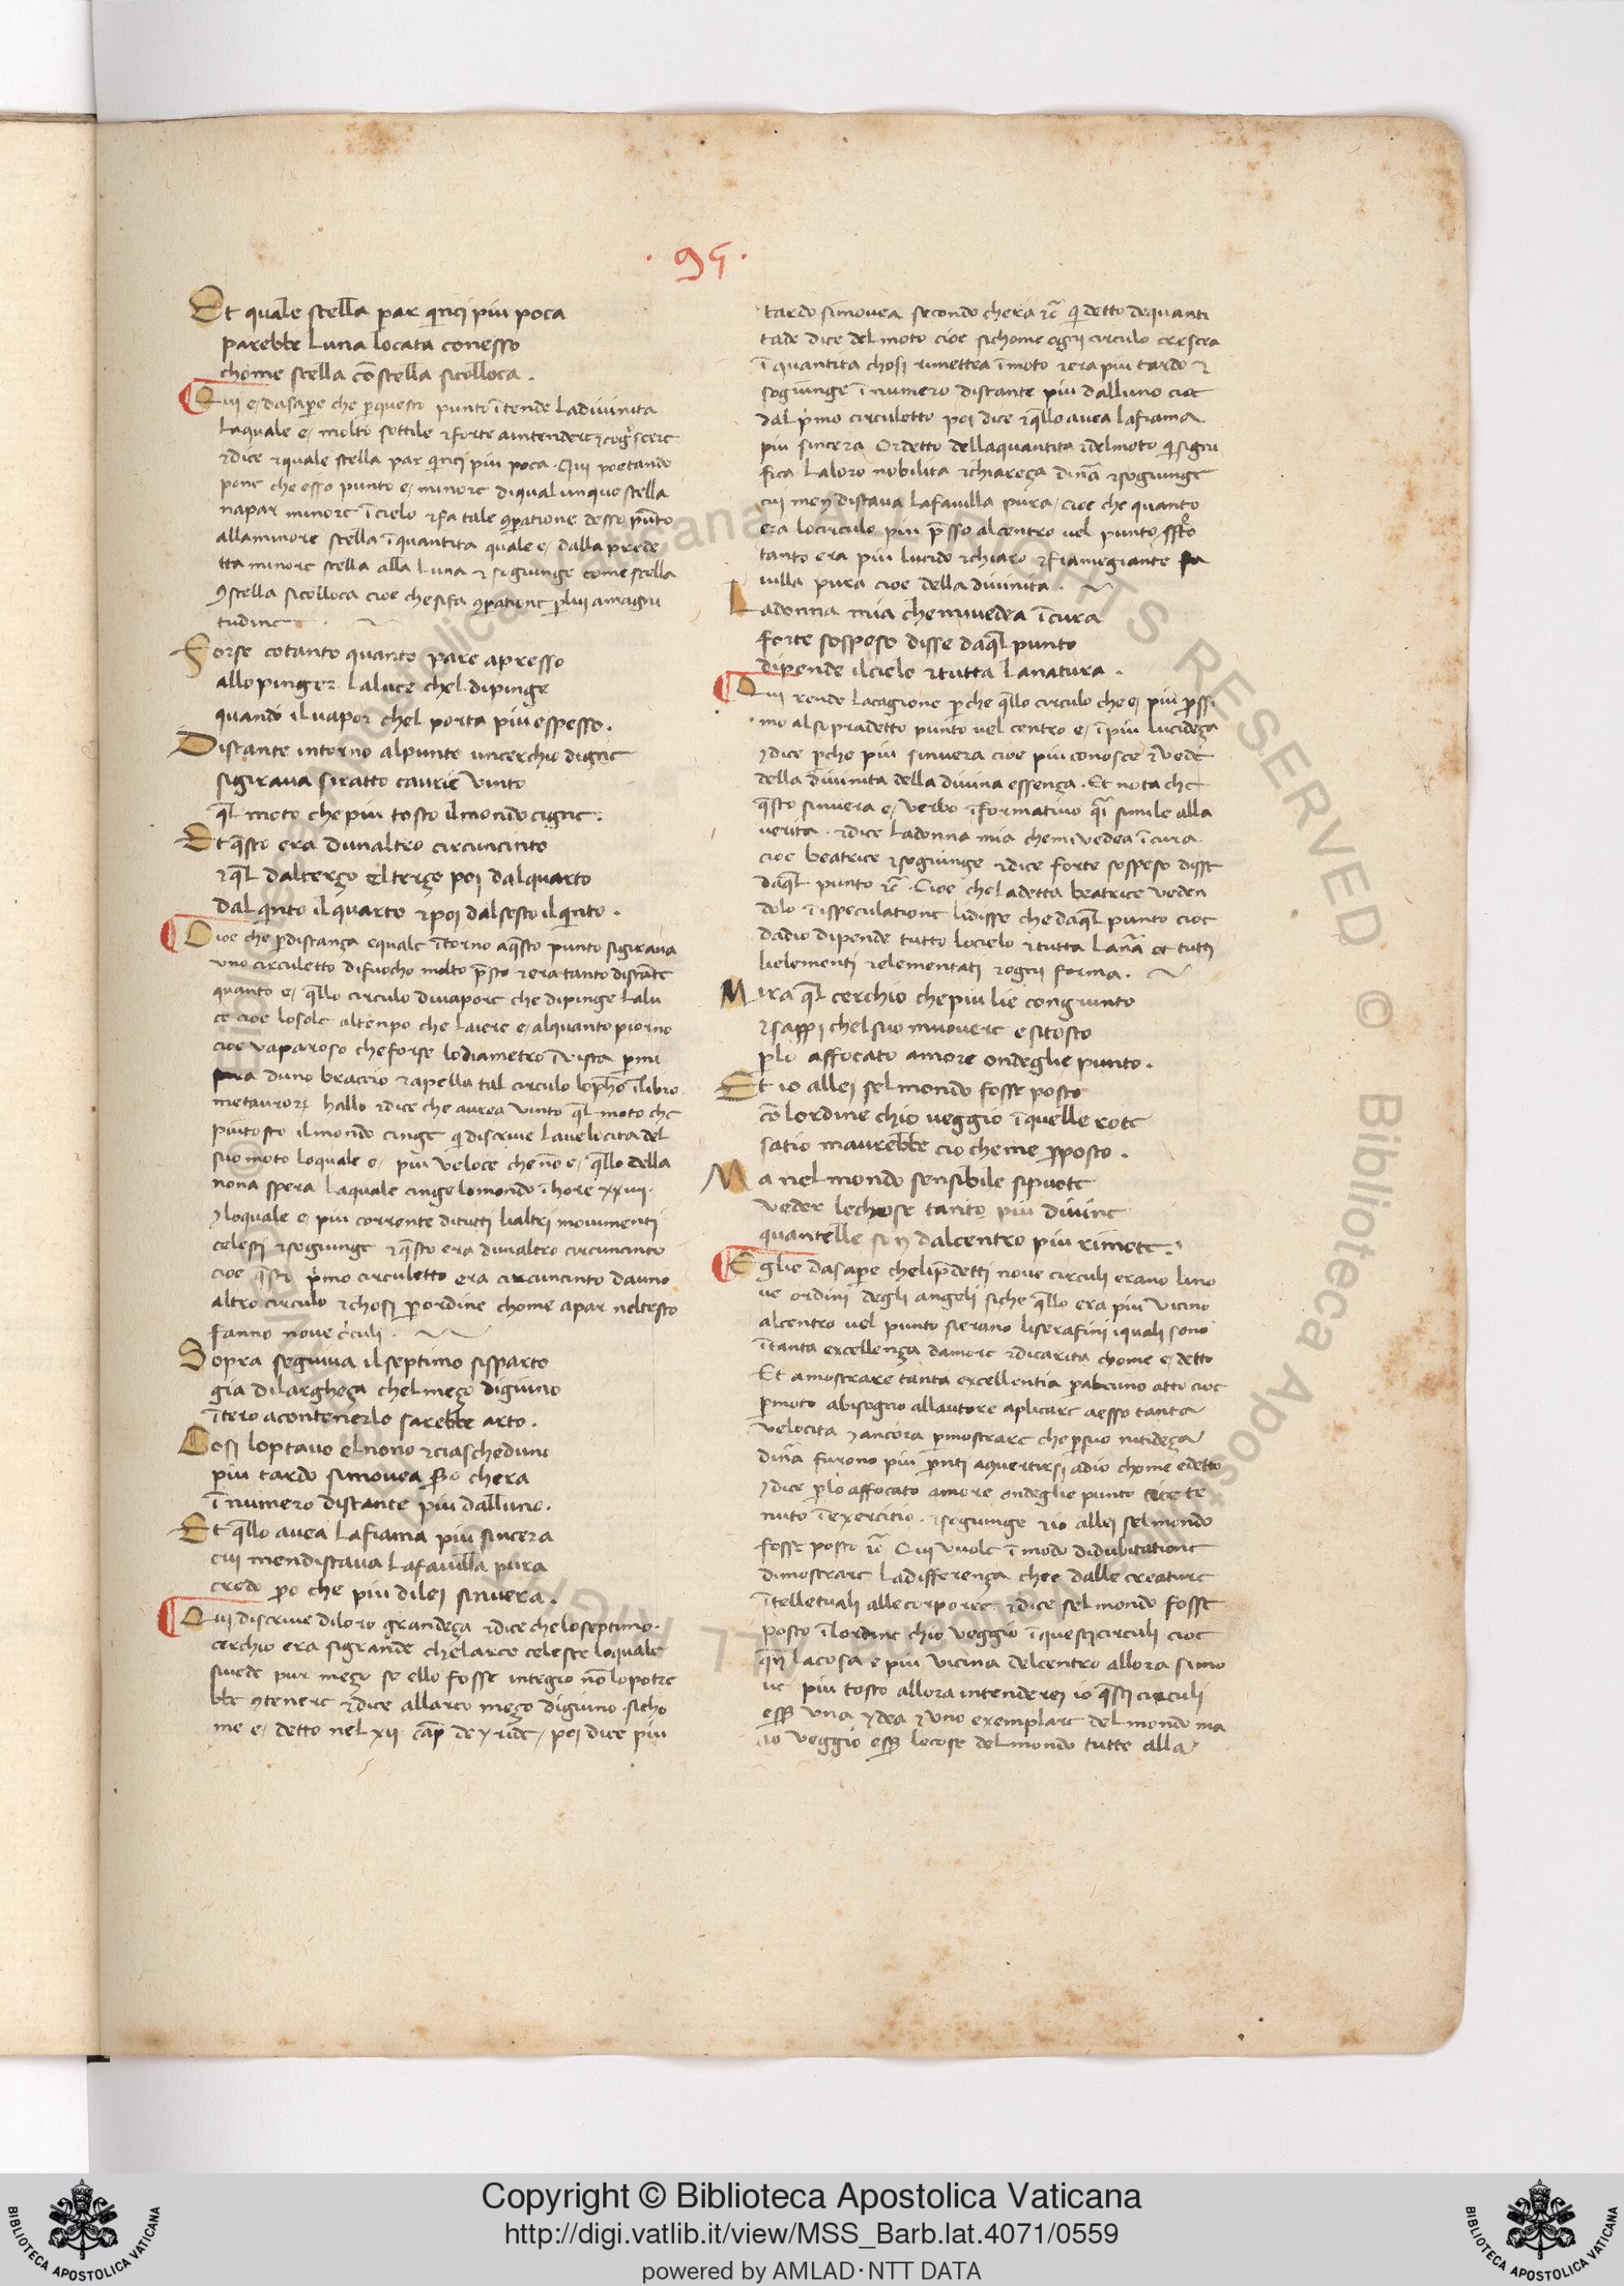 · 95 ·
Et quale stella par qinci piu poca
parebbe Luna locata conesso
chome stella cō stella sicolloca .
Qui e dasaper che pquesto punto ītende Ladiuinita
Laquale e molto sottile ⁊forte aintendere⁊
⁊dice ⁊quale stella par qinci piu poca . Qui poetando
pone che esso punto e minore diqualunque stella
napar minore ī cielo ⁊fa tale 9paratione desso pūto
allaminore stella ī quantita quale e dalla prede
tta minore stella alla Luna ⁊ sogiunge come stella
9stella sicolloca cioe chesifa 9paratione plui amagni
tudine .
Forse cotanto quanto pare apresso
allo pinger Laluce chel dipinge
quando iluapor chel porta piu espesso .
Distante intorno alpunto uncerchio digne
sigiraua siratto caurie uinto
ql moto che piu tosto ilmondo cigne .
Et qsto era dunaltro circuncinto
⁊ql dalterço elterço poi dalquarto
dal qinto ilquarto ⁊poi dalsesto ilqinto .
Cioe che pdistança equale ītorno aqsto punto sigiraua
uno circuletto difuocho molto psto ⁊era tanto distāte
quanto e qllo circulo diuapore che dipinge Lalu
ce cioe losole altenpo che Laiere e alquanto piorno
cioe uaparoso cheforse lodiametro ī uista
duno braccio ⁊apella tal circulo ī libro
metauror hallo ⁊dice che aurea uinto ql moto che
piutosto ilmondo cinge qi discriue Lauelocita del
suo moto loquale e piu ueloce che nō e qllo della
nona spera Laquale cinge lomondo ī hore xxiiii .
⁊loquale e piu corrente ditutti lialtri mouimenti
celesti ⁊sogiunge ⁊qsto era dunaltro circuncinto
cioe qsto pmo circuletto era circuncinto dauno
altro circulo ⁊chosi p ordine chome apar neltesto
fanno noue c'culi .
Sopra seguiua ilseptimo sisparto
gia dilargheça chelmeço digiuno
ītero acontenerlo sarebbe arto .
Cosi loptauo elnono ⁊ciascheduno
piu tardo simouea chera
ī numero distante piu dalluno .
Et qllo auea Lafiama piu sincera
cui mendistaua Lafauilla pura
credo po che piu dilei sinuera .
Qui discriue diloro grandeça ⁊dice cheloseptimo
cerchio era sigrande chelarco celeste loquale
siuede pur meço se ello fosse integro nō lo potre
bbe 9tenere ⁊dice allarco meço digiuno sicho
me e detto nel xii cap de poi dice piu
tardo simouea secondo chera ⁊c qi detto dequanti
tade dice del moto cioe sichome ogni circulo crescea
ī quantita chosi rimettea ī moto ⁊era piu tardo ⁊
sogiunge ī numero distante piu dalluno cioe
dal pmo circuletto poi dice ⁊qllo auea lafiama
piu sincera Or detto dellaquantita ⁊delmoto qi signi
fica Laloro nobilita ⁊chiareça diuīa ⁊sogiunge
cui men distaua Lafauilla pura cioe che quanto
era locirculo piu psso alcentro uel punto
tanto era piu lucido ⁊chiaro ⁊fiamegiante fa
uilla pura cioe della diuinita .
La donna mia chemiuedea ī cura
forte sospeso disse daql punto
dipende ilcielo ⁊tutta Lanatura .
Qui rende Lacagione p che qllo circulo che e piu pssi
mo alsopradetto punto uel centro e ī piu lucideça
⁊dice pche piu sinuera cioe piu conosce ⁊uede
della diuinita della diuina essença . Et nota che
qsto sinuera e uerbo īformatiuo qi simile alla
uerita . ⁊dice Ladonna mia chemiuedea ī cura
cioe beatrice ⁊sogiunge ⁊dice forte sospeso disse
daql punto ⁊c . Cioe cheladetta beatrice ueden
dolo ī ispeculatione lidisse che daql punto cioe
dadio dipende tutto locielo ⁊tutta Lanāa et tutti
lielementi ⁊elementati ⁊ogni forma .
Mira ql cerchio chepiu lie congiunto
⁊sappi chelsuo muouere e sitosto
plo affocato amore ondeglie punto .
Et io allei sel mondo fosse posto
cō lordine chio ueggio ī quelle rote
satio maurebbe cio cheme pposto .
Ma nel mondo sensibile sipuote
ueder lechose tanto piu diuine
quantelle son dalcentro piu rimote .
Eglie dasaper chelipdetti noue circuli erano lino
ue ordini degli angeli siche qllo era piu uicino
alcentro uel punto sierano liserafini iquali sono
ītanta excellença damore ⁊dicarita chome e detto
Et amostrare tanta excellentia palcuno atto cioe
pmoto abisogno allautore aplicare aesso tanta
uelocita ⁊ancora pmostrare che psuo nitideça
diuīa furono piu pnti aquertirsi adio chome edetto
⁊dice plo affocato amore ondeglie punto cioe te
nuto ī exercitio . ⁊sogiunge ⁊io allei selmondo
fosse posto ⁊c Qui uuole ī modo didubitatione
dimostrare Ladifferença chee dalle creature
ītelletuali alle corporee . ⁊dice sel mondo fosse
posto ī lordine chio ueggio ī questi circuli cioe
qn Lacosa e piu uicina delcentro allora simo
ue piu tosto allora intenderei io qsti circuli
una ydea ⁊uno exemplare del mondo ma
io ueggio lecose delmondo tutte alla
Copyright © Biblioteca Apostolica Vaticana
http://digi.vatlib.it/view/MSS_Barb.lat.4071/0559
powered by AMLAD·NTT DATA